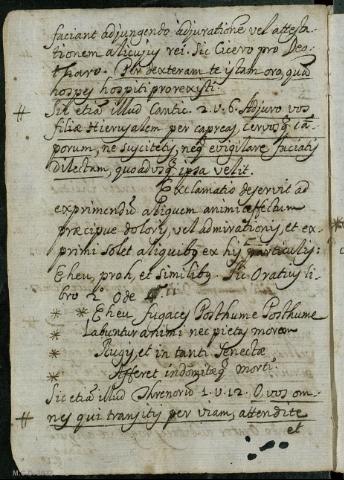 faciant adjungendo adjurationem vel attesta-
tionem alicujus rei. Sic Cicero pro Deo-
tharo. Per dexteram te istam oro, quã
hospes hospiti prorexisti.
# Sic etiã illud Cantic. 2. v. 6. Adjuro vos
filiæ Hierusalem per capreas, cervosq cã-
porum, ne suscitetis, neq evigilare faciatis
dilectam, quoadusq ipsa velit.
Exclamatio deservit ad
exprimendũ aliquem animi affectum
præcipue doloris, vel admirationis, et ex-
primi solet aliquibus ex his particulis:
Eheu, proh, et similibus. Sic Oratius li-
bro 2º Ode
* * Eheu fugaces Posthume Posthume
* Labuntur animi nec pietas moram
* Rugis, et in tanti Senectæ
* Afferet indomitæq morti.
Sic etiã illud Threnorũ 1. v. 12. O vos om-
# nes qui transitis per viam, attendite
et